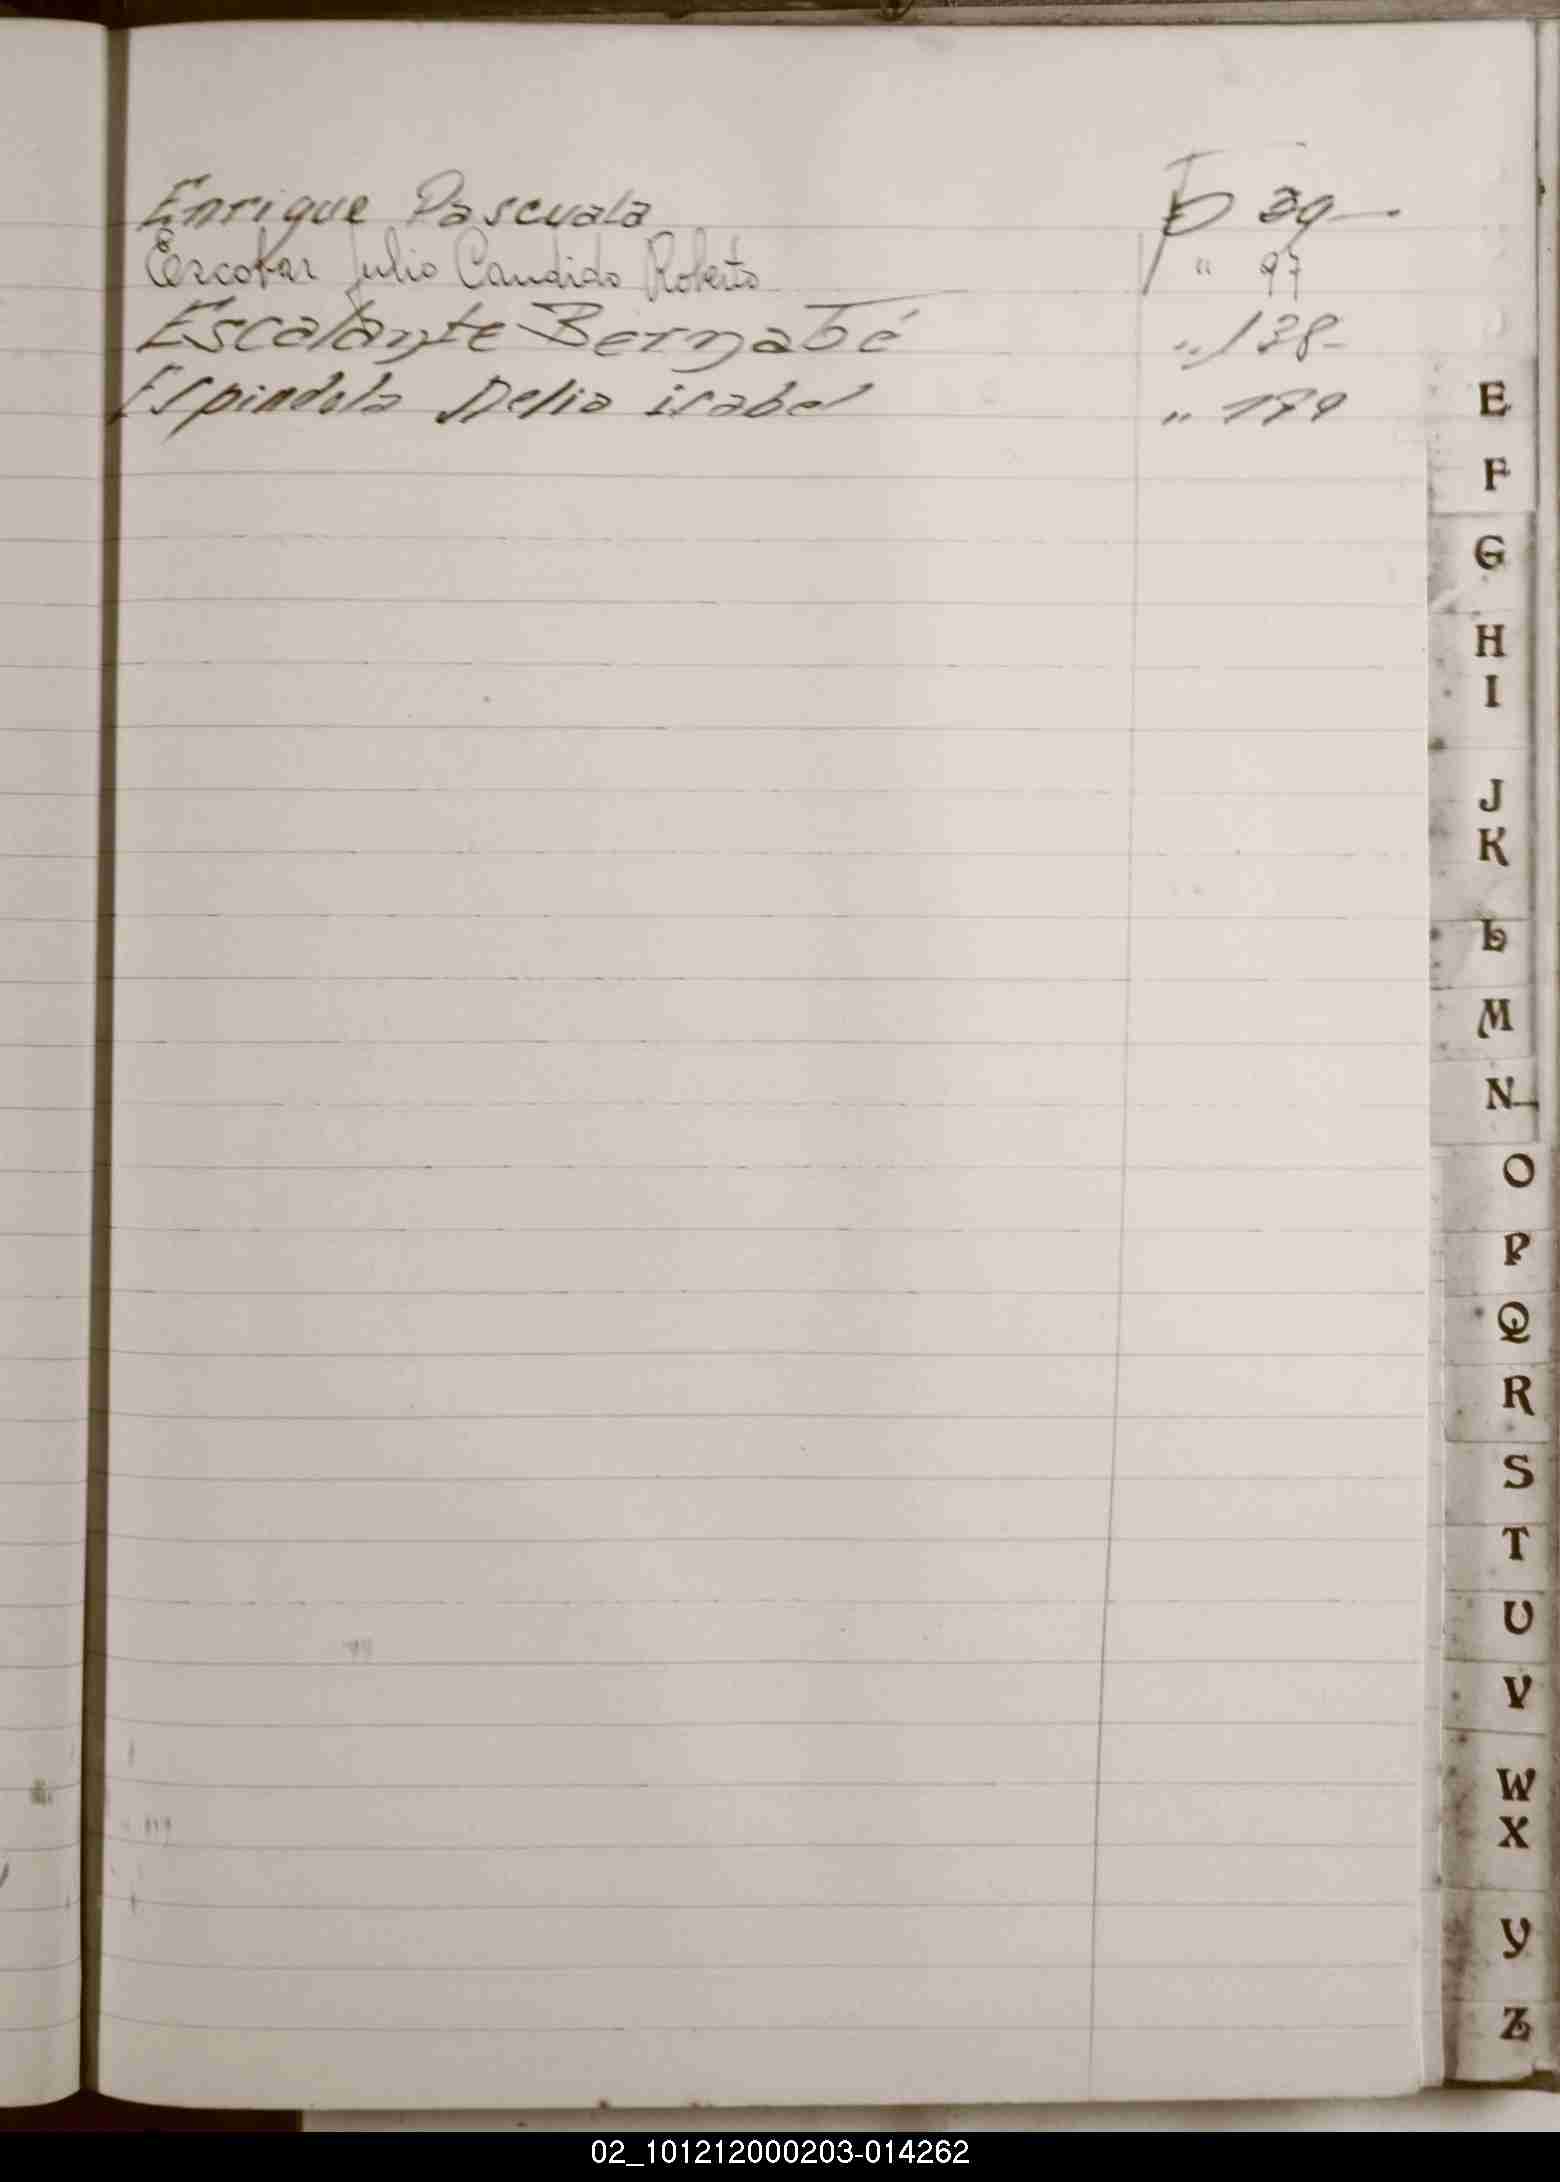 Enrique Pascuala 39
Escobar Julio Candido Roberto " 97
Escalante Bernabé " 138
Espindola Delia isabel " 179
E
F
G
H
I
J
K
L
M
N
O
P
Q
R
S
T
U
V
W
X
Y
Z
02_101212000203-014262